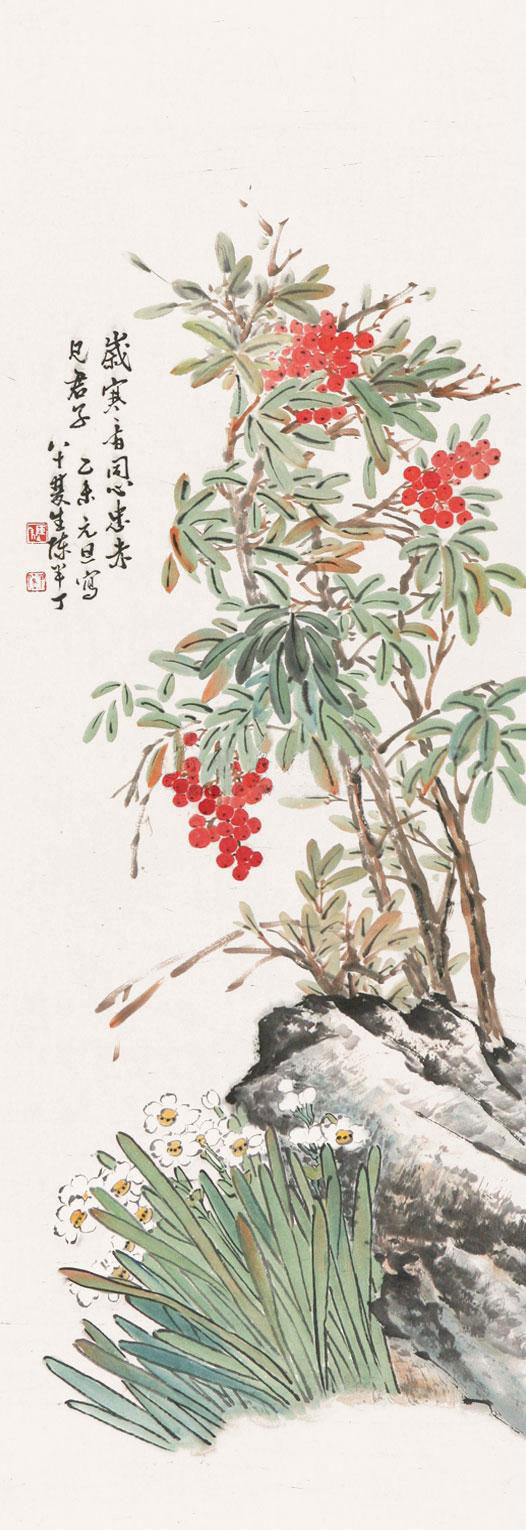 歲寒音同心忠孝
見君子 乙未元旦寫
八十叟生陳半丁